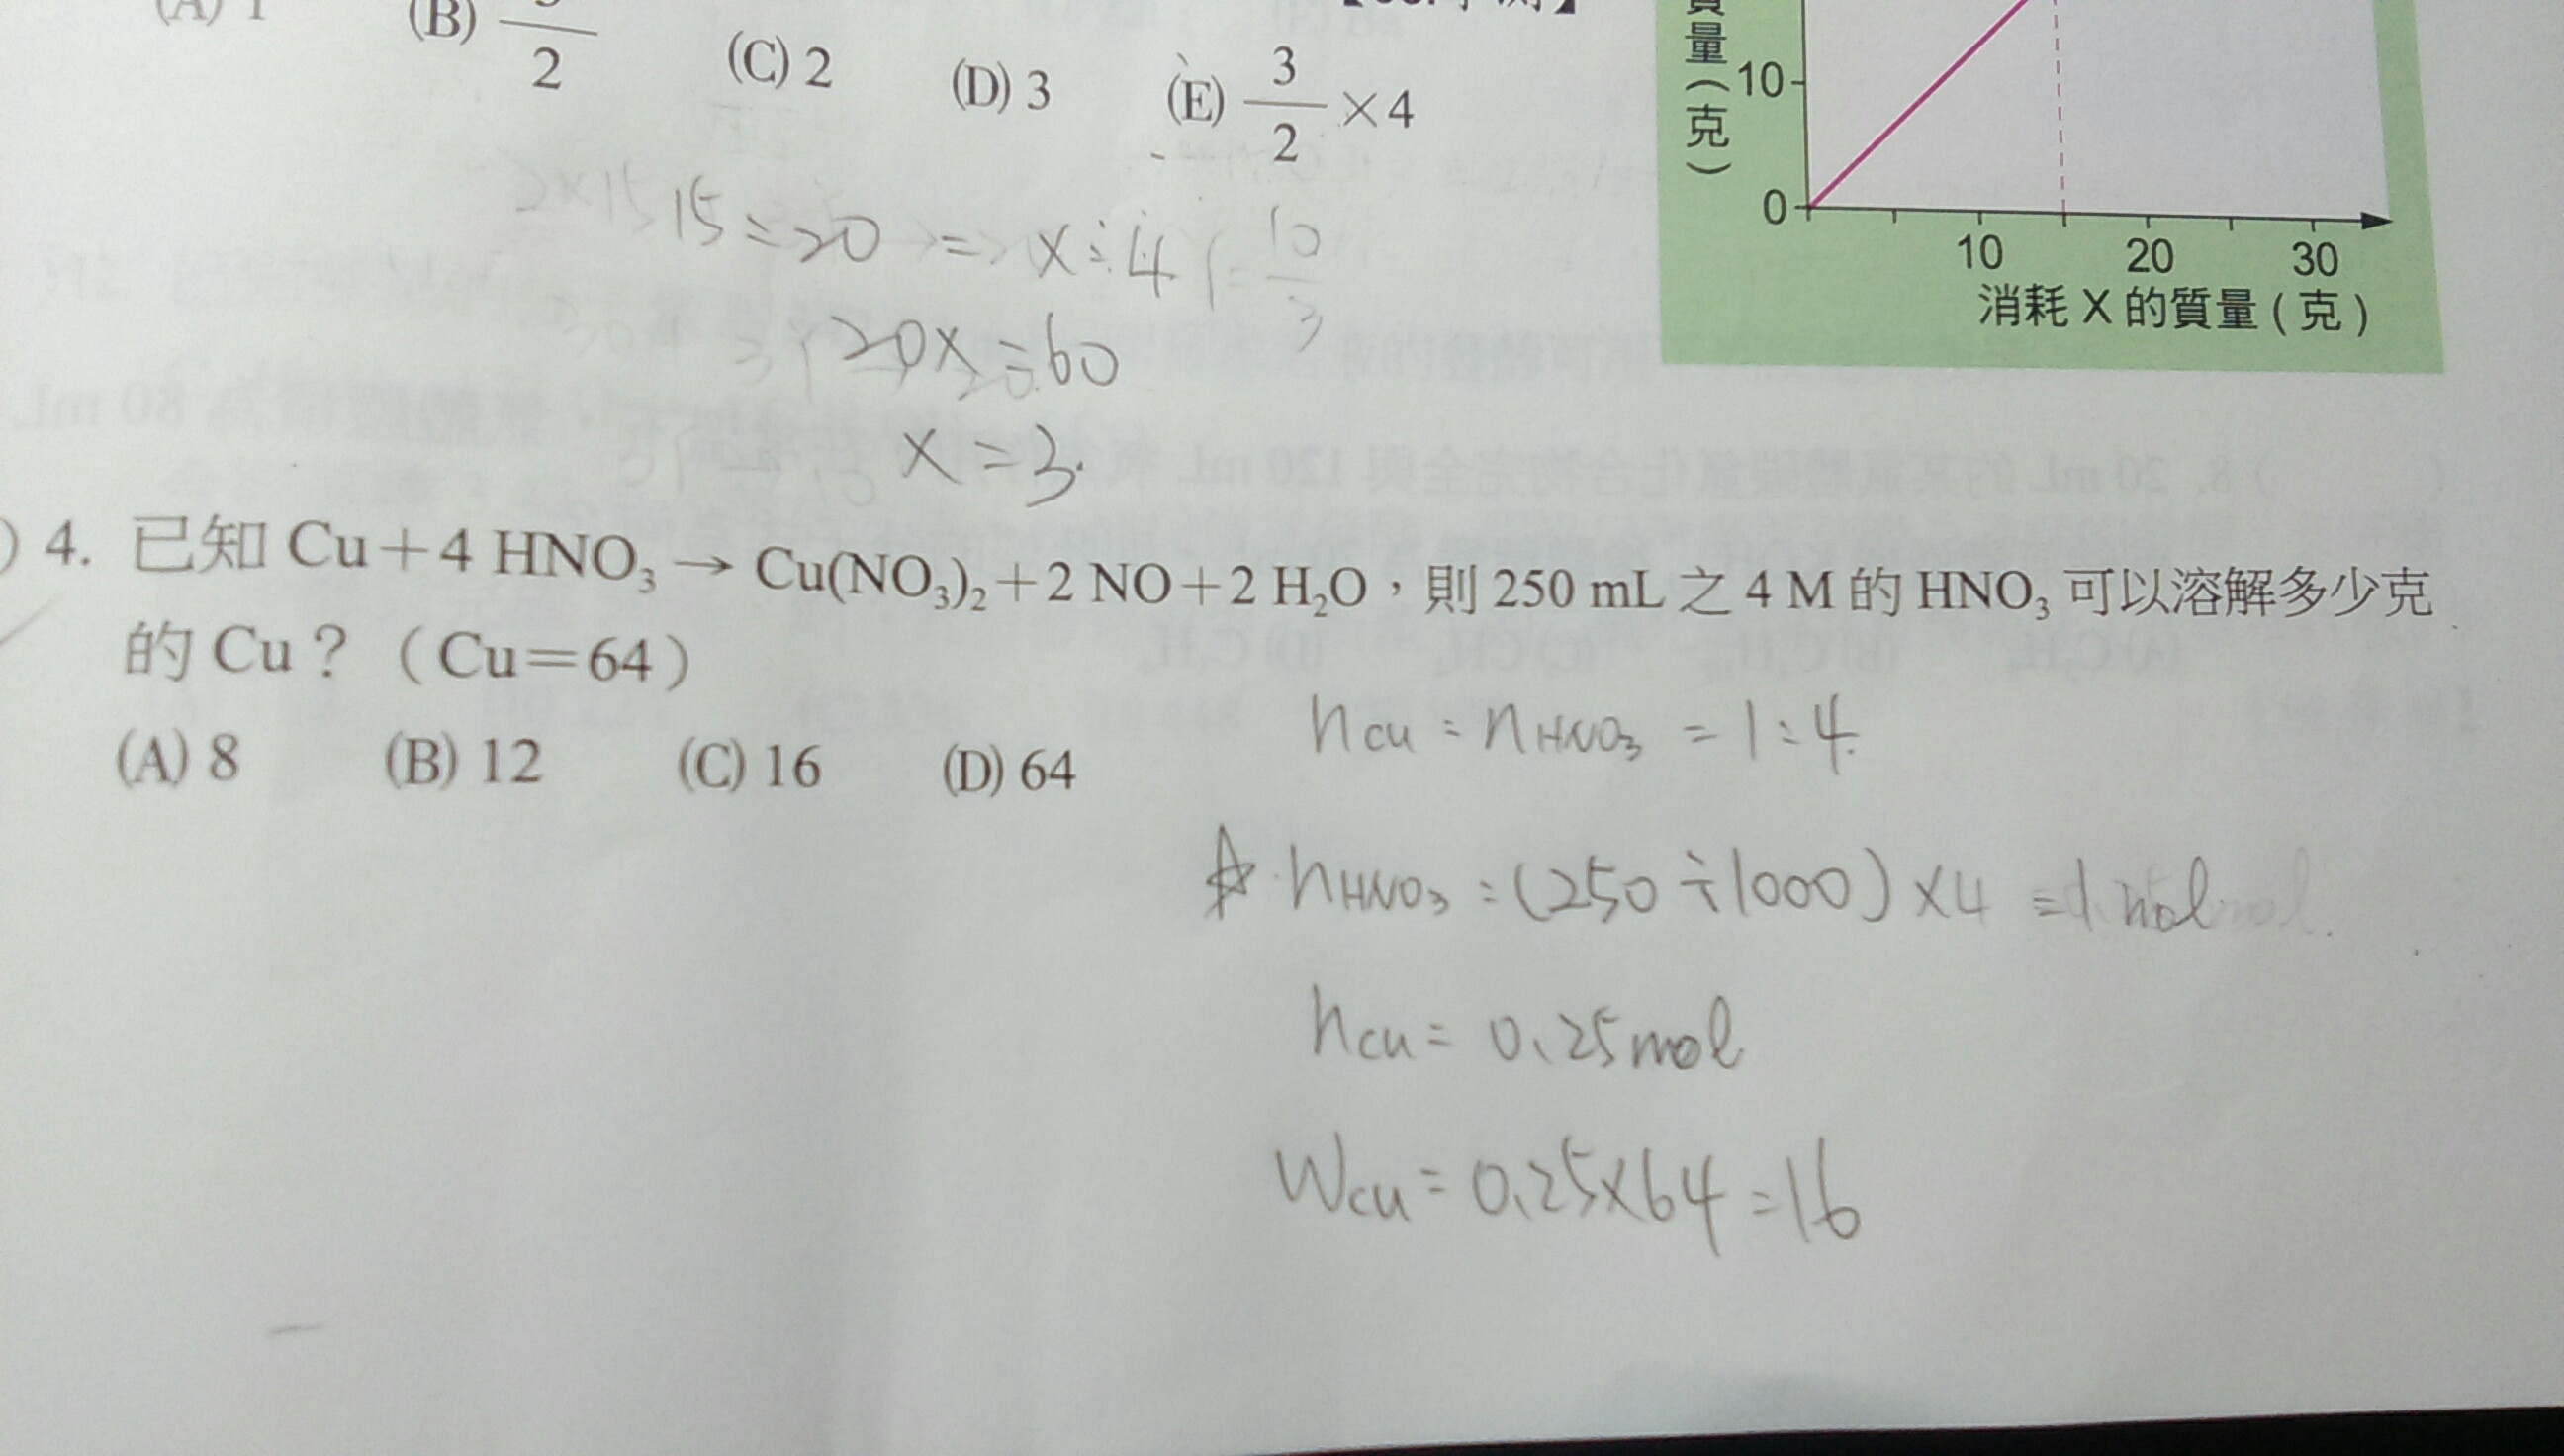 (B) 2
(C) 2
(D) 3
(E) 3/2 ×4
質量(克)
10
0
10 20 30
消耗 X 的質量(克)
15:20 = x:4
20x=60
x=3.
) 4. 已知 Cu+4 HNO₃→Cu(NO₃)₂+2 NO+2 H₂O,則 250 mL 之 4 M 的 HNO₃ 可以溶解多少克
的 Cu?(Cu=64)
(A) 8 (B) 12 (C) 16 (D) 64
nCu : nHNO₃ = 1:4.
☆ nHNO₃ = (250÷1000)×4 = 1 mol
nCu = 0.25mol
WCu = 0.25×64 = 16